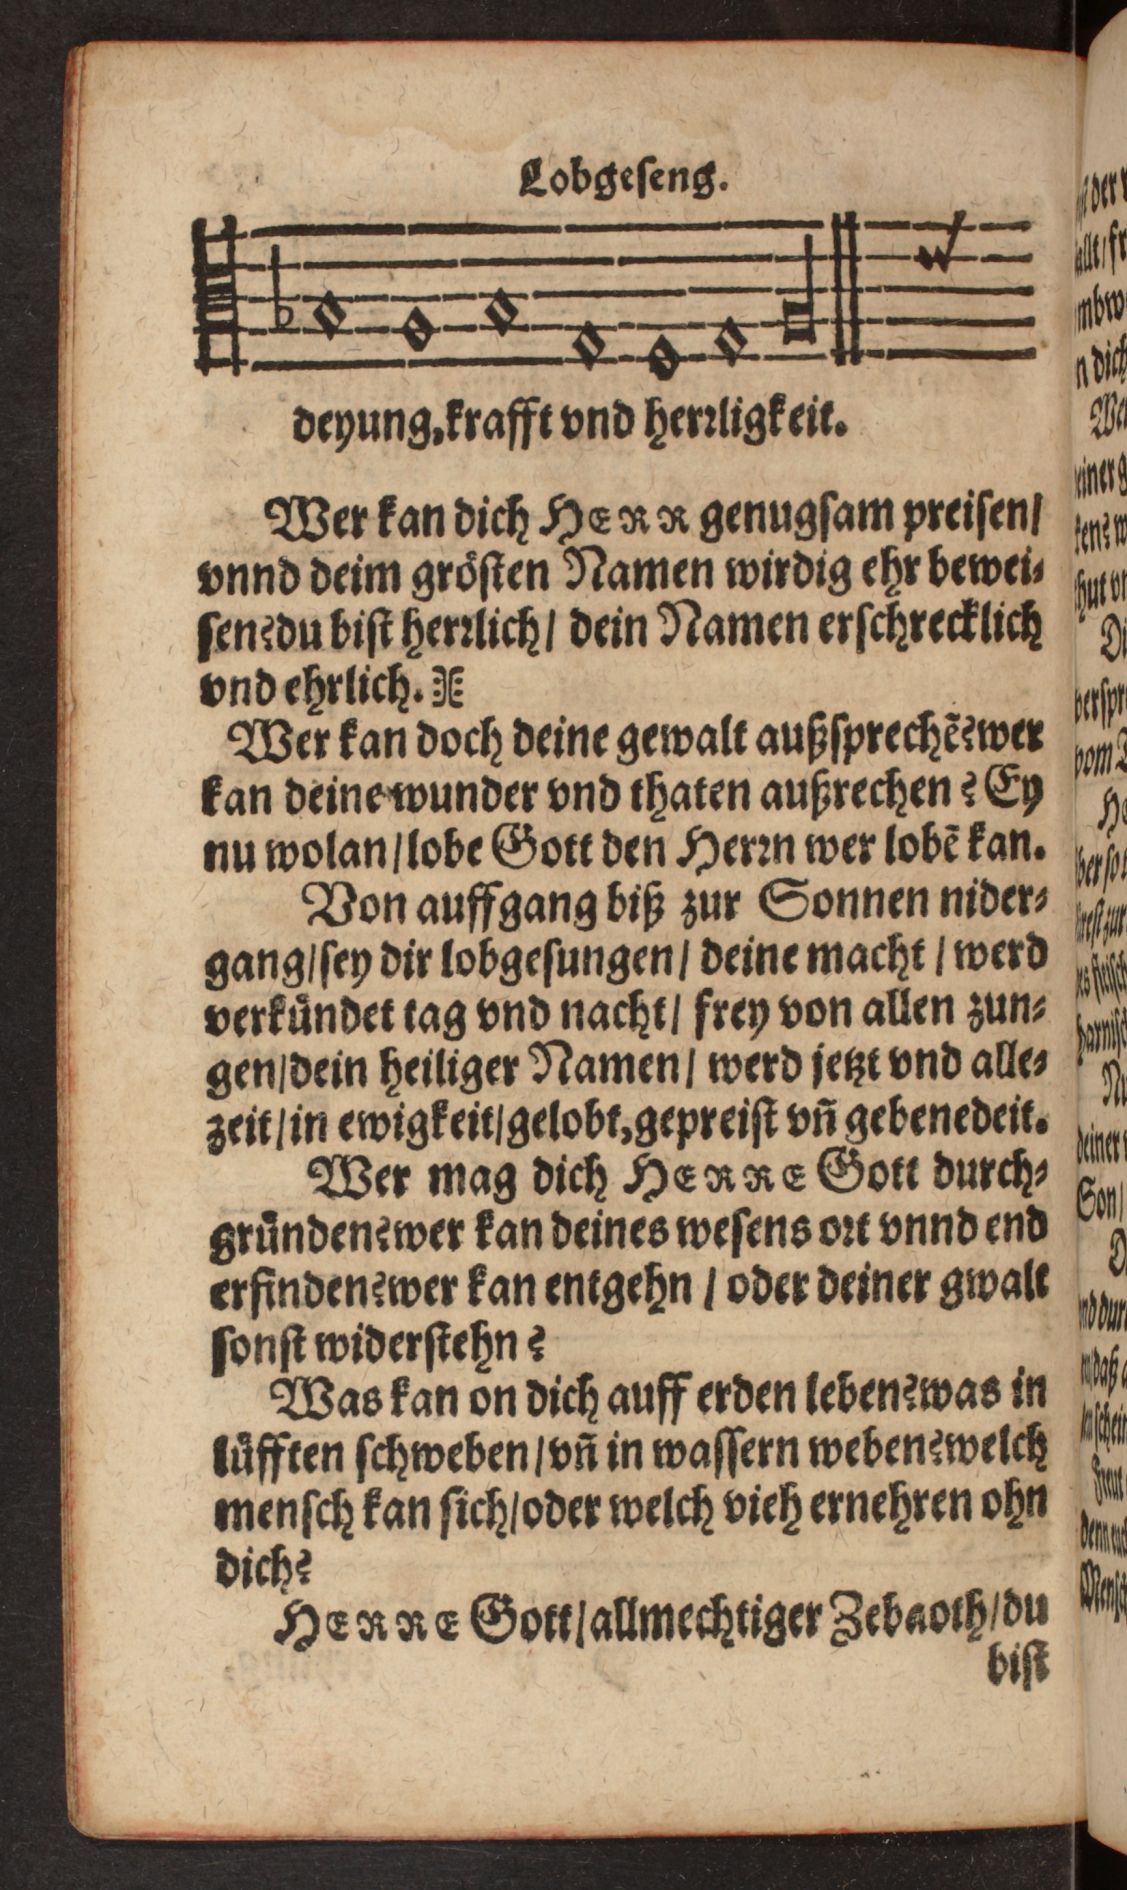 Lobgeseng.
deyung, krafft vnd herrligkeit.
Wer kan dich HERR genugsam preisen/
vnnd deim grösten Namen wirdig ehr bewei-
sen? du bist herrlich/ dein Namen erschrecklich
vnd ehrlich.
Wer kan doch deine gewalt außsprechē? wer
kan deine wunder vnd thaten außrechen? Ey
nu wolan/ lobe Gott den Herrn wer lobē kan.
Von auffgang biß zur Sonnen nider-
gang/ sey dir lobgesungen/ deine macht/ werd
verkündet tag vnd nacht/ frey von allen zun-
gen/ dein heiliger Namen/ werd jetzt vnd alle-
zeit/ in ewigkeit/ gelobt, gepreist vñ gebenedeit.
Wer mag dich HERRE Gott durch-
gründen? wer kan deines wesens ort vnnd end
erfinden? wer kan entgehn/ oder deiner gwalt
sonst widerstehn?
Was kan on dich auff erden leben? was in
lüfften schweben/ vñ in wassern weben? welch
mensch kan sich/ oder welch vieh ernehren ohn
dich?
HERRE Gott/ allmechtiger Zebaoth/ du
bist